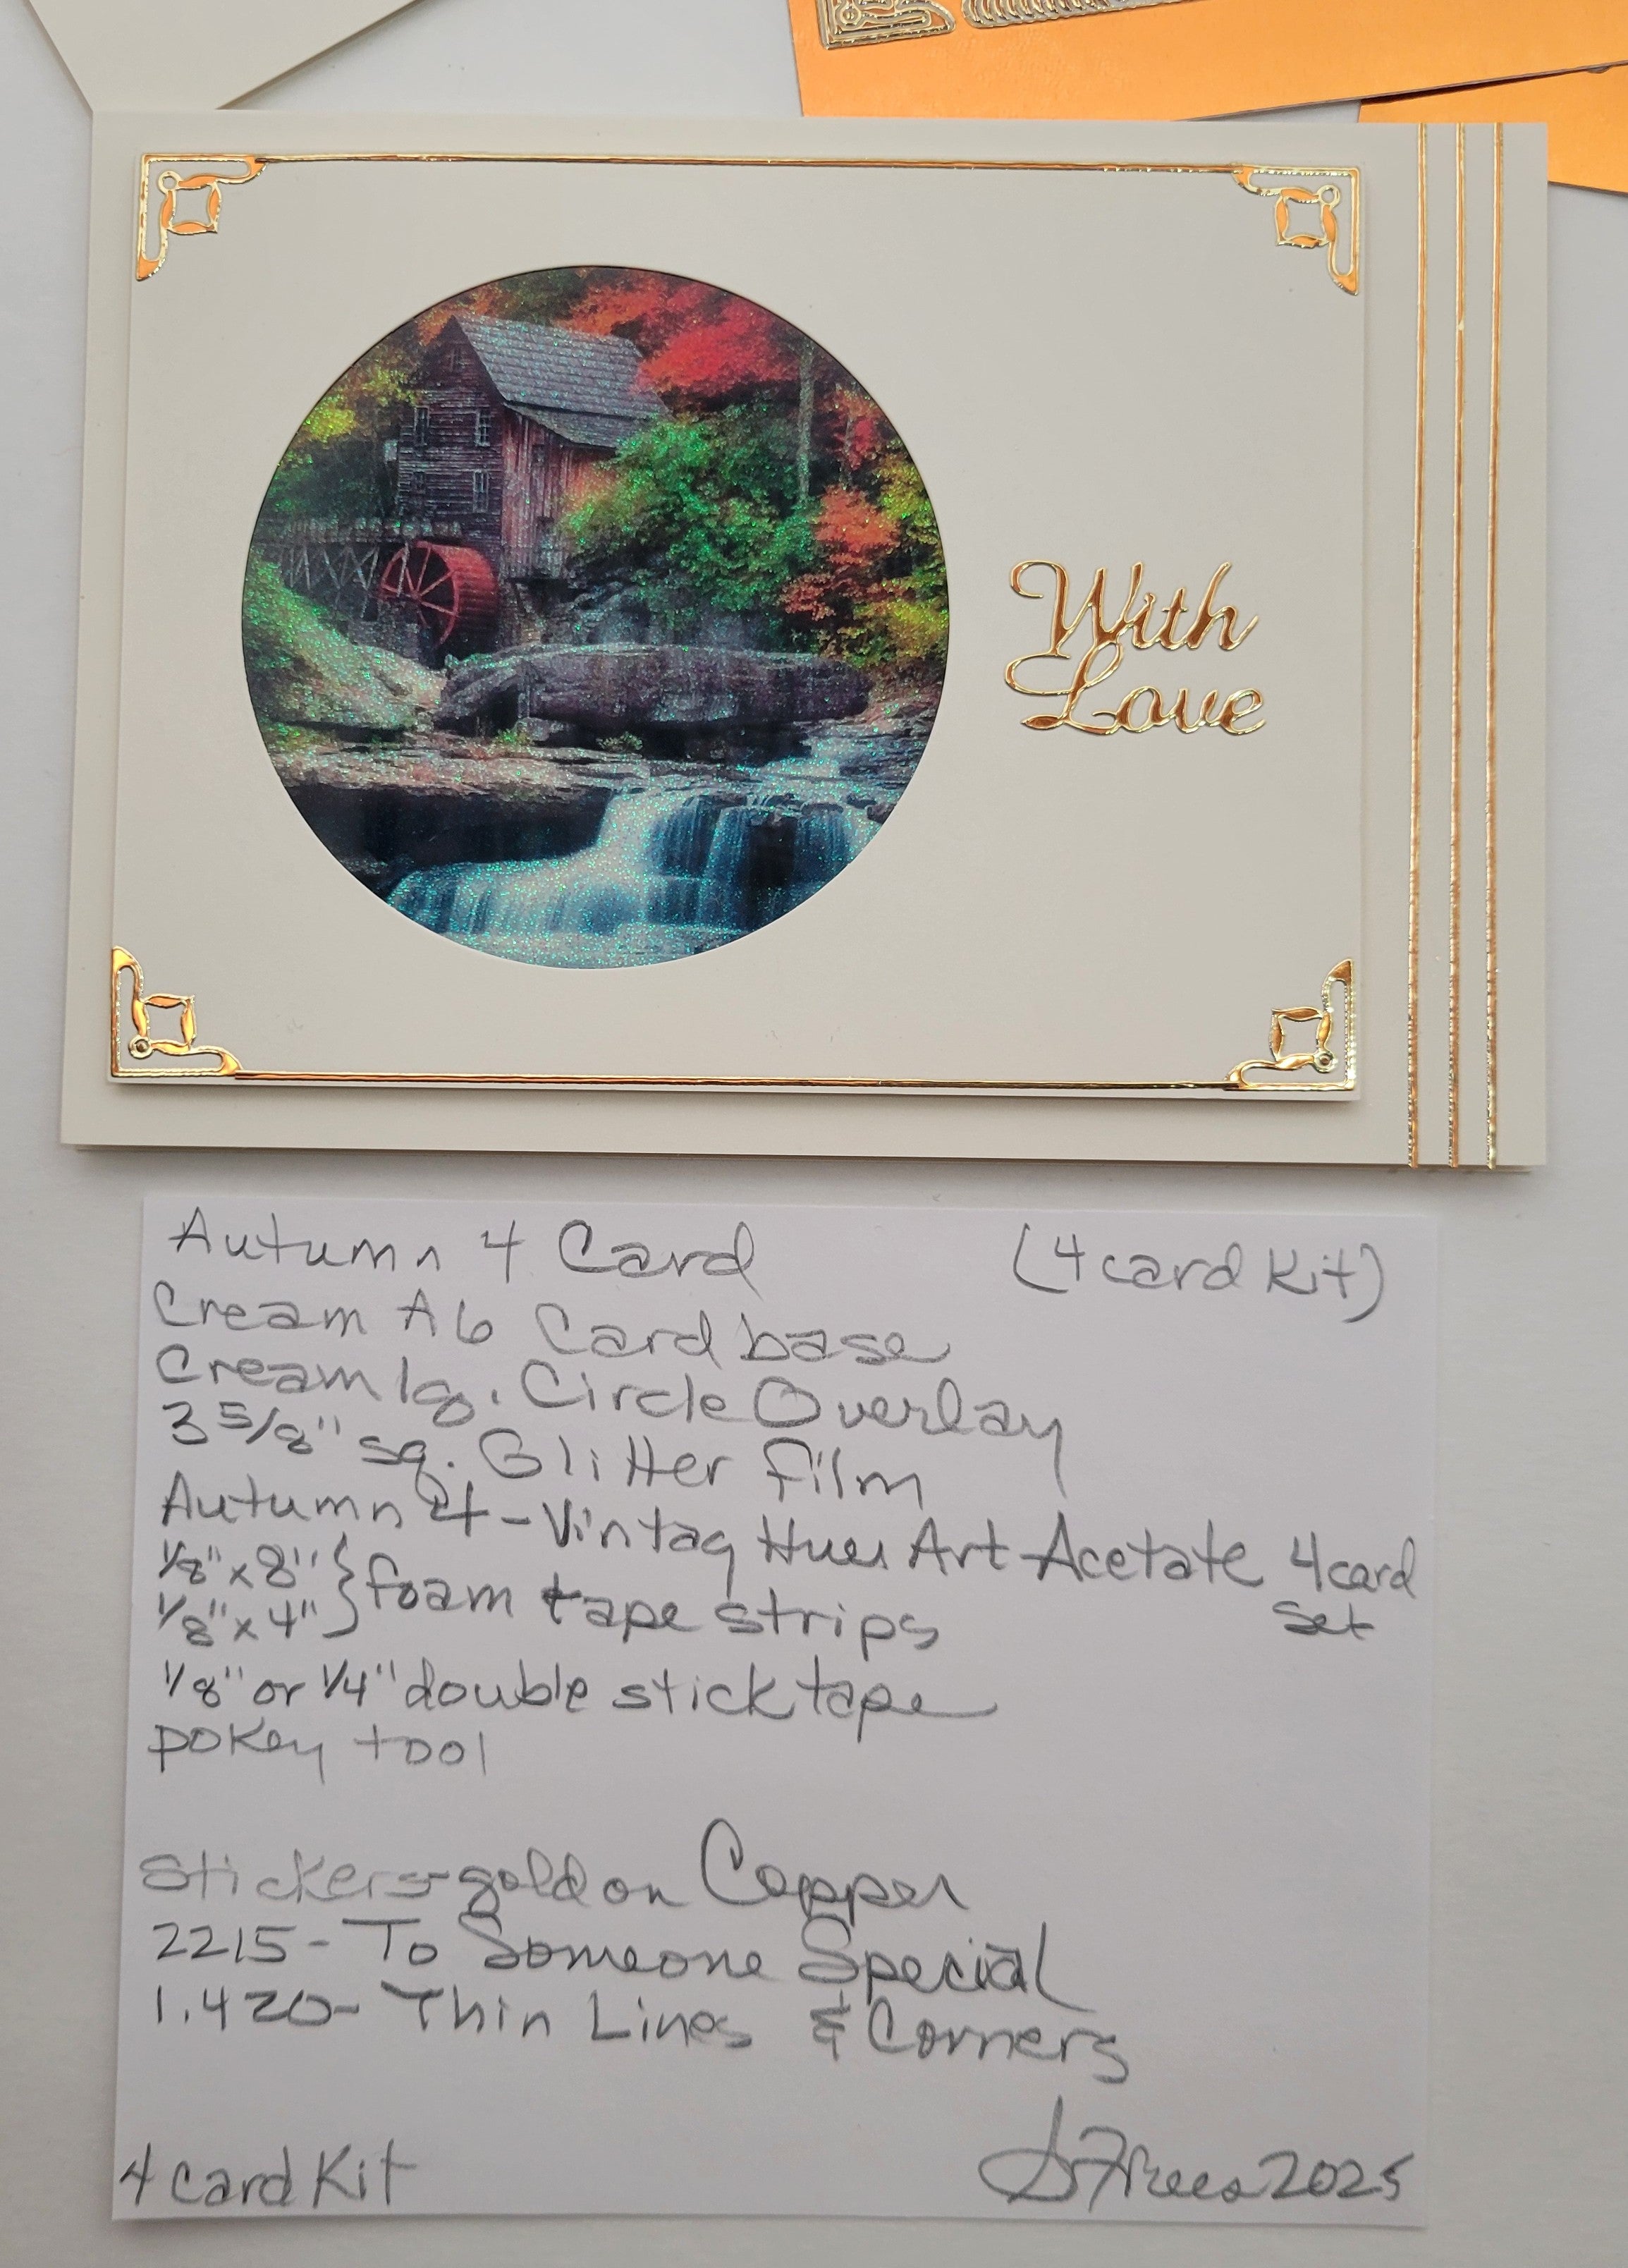 With
Love
Autumn 4 Card (4 card Kit)
Cream A6 Card base
Cream lg. Circle Overlay
3 5/8" sq. Glitter Film
Autumn 4 - Vintag Hues Art Acetate 4 card
set
1/8" x 8" } foam tape strips
1/8" x 4"
1/8" or 1/4" double stick tape
pokey tool
Stickers - gold on Copper
2215 - To Someone Special
1.420 - Thin Lines & Corners
4 card Kit 2025